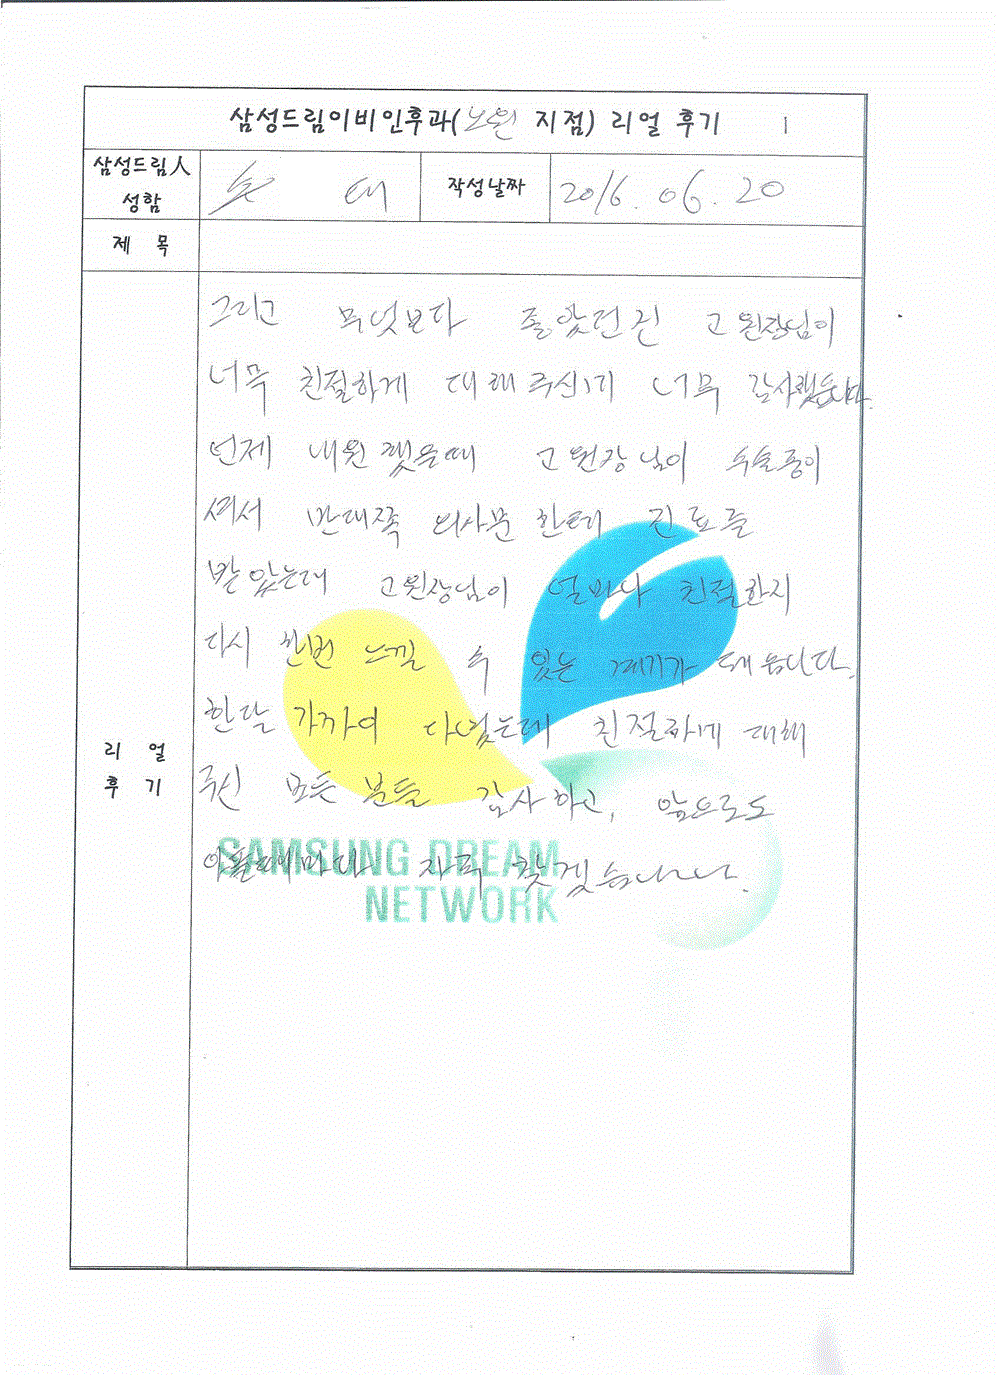 삼성드림이비인후과(노원 지점) 리얼 후기 1
삼성드림人 성함 손 대 작성날짜 2016.06.20
제 목
그리고 무엇보다 좋았던건 고원장님이
너무 친절하게 대해주신기 너무 감사했습니다.
언제 내원했을때 고원장님이 수술중이
셔서 반대쪽 의사분한테 진료를
받았는데 고원장님이 얼마나 친절한지
다시 한번 느낄 수 있는 계기가 돼습니다.
한달 가까이 다녔는데 친절하게 대해
리얼 후기
주신 모든 분들 감사하고, 앞으로도
아플때마다 자주 찾겠습니다.
SAMSUNG DREAM
NETWORK